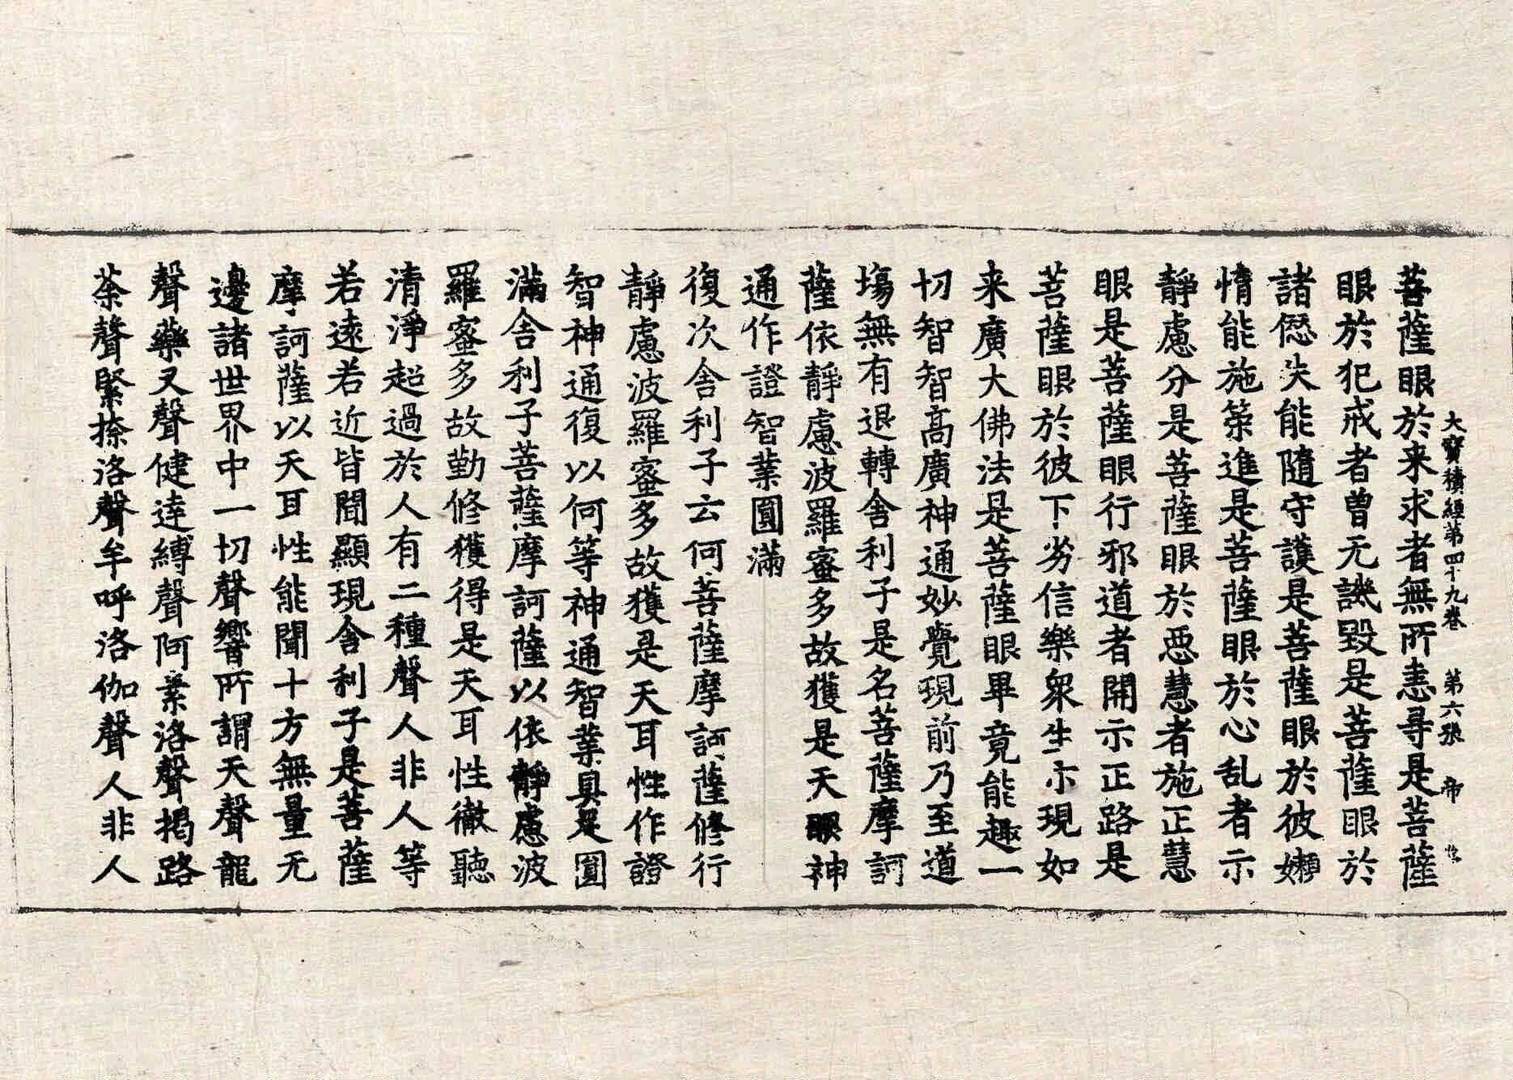 大寶積經第四十九卷 第六張 帝
菩薩眼於来求者無所恚㝵是菩薩
眼於犯戒者曽无譏毀是菩薩眼於
諸愆失能隨守護是菩薩眼於彼嬾
惰能施策進是菩薩眼於心乱者示
靜慮分是菩薩眼於惡慧者施正慧
眼是菩薩眼行邪道者開示正路是
菩薩眼於彼下劣信樂衆生示現如
来廣大佛法是菩薩眼畢竟能趣一
切智智高廣神通妙覺現前乃至道
場無有退轉舎利子是名菩薩摩訶
薩依靜慮波羅蜜多故獲是天眼神
通作證智業圓滿
復次舎利子云何菩薩摩訶薩修行
靜慮波羅蜜多故獲是天耳性作證
智神通復以何等神通智業具足圓
滿舎利子菩薩摩訶薩以依靜慮波
羅蜜多故勤修獲得是天耳性徹聽
清淨超過於人有二種聲人非人等
若遠若近皆聞顯現舎利子是菩薩
摩訶薩以天耳性能聞十方無量无
邊諸世界中一切聲響所謂天聲龍
聲藥叉聲健達縛聲阿素洛聲揭路
荼聲緊捺洛聲牟呼洛伽聲人非人